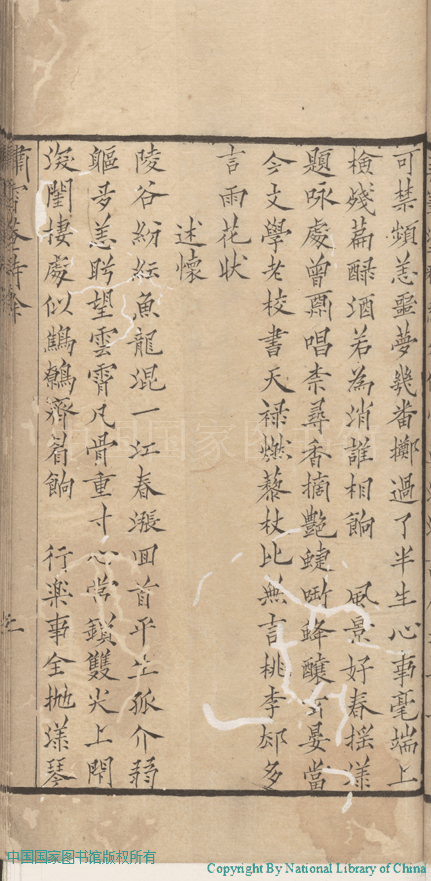 可禁頻恙噩夢幾番擲過了半生心事毫端上
檢殘扁醁酒若為消誰相餉 風景好春搖漾
題咏處曾鬲唱柰尋香摘艷蜨嘶蜂釀玄晏當
今文學老校書天禄燃藜杖比無言桃李郯多
言雨花状
述懷
陵谷紛紜魚龍混一江春漲回首平生孤介弱
軀多恙眄望雲霄凡骨重寸心常鎖雙尖上閉
深閨棲處似鷦鷯齊眉餉 行楽事全抛漾琴
中国国家图书馆版权所有
Copyright By National Library of China